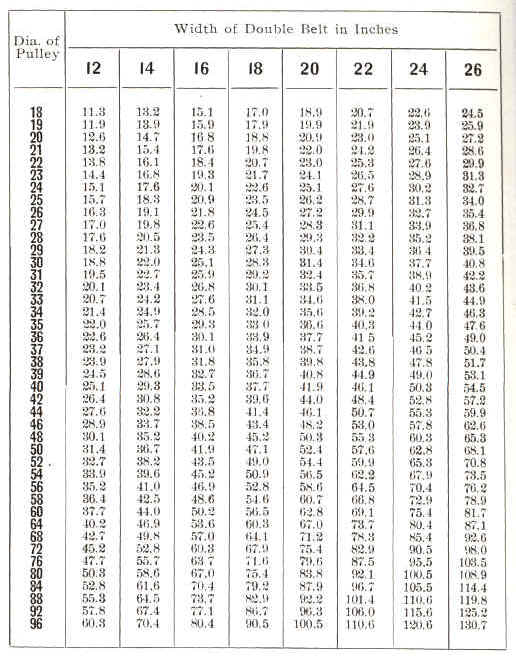 Width of Double Belt in Inches
Dia. of
Pulley
12 14 16 18 20 22 24 26
18 11.3 13.2 15.1 17.0 18.9 20.7 22.6 24.5
19 11.9 13.9 15.9 17.9 19.9 21.9 23.9 25.9
20 12.6 14.7 16 8 18.8 20.9 23.0 25.1 27.2
21 13.2 15.4 17.6 19.8 22.0 24.2 26.4 28.6
22 13.8 16.1 18.4 20.7 23.0 25.3 27.6 29.9
23 14.4 16.8 19.3 21.7 24.1 26.5 28.9 31.3
24 15.1 17.6 20.1 22.6 25.1 27.6 30.2 32.7
25 15.7 18.3 20.9 23.5 26.2 28.7 31.3 34.0
26 16.3 19.1 21.8 24.5 27.2 29.9 32.7 35.4
27 17.0 19.8 22.6 25.4 28.3 31.1 33.9 36.8
28 17.6 20.5 23.5 26.4 29.3 32.2 35.2 38.1
29 18.2 21.3 24.3 27.3 30.4 33.4 36 4 39.5
30 18.8 22.0 25.1 28.3 31.4 34.6 37.7 40.8
31 19.5 22.7 25.9 29.2 32.4 35.7 38.9 42.2
32 20.1 23.4 26.8 30.1 33.5 36.8 40 2 43.6
33 20.7 24.2 27.6 31.1 34.6 38.0 41.5 44.9
34 21.4 24.9 28.5 32.0 35.6 39.2 42.7 46.3
35 22.0 25.7 29.3 33 0 36.6 40.3 44 0 47.6
36 22.6 26.4 30.1 33.9 37.7 41 5 45.2 49.0
37 23.2 27.1 31.0 34.9 38.7 42.6 46 5 50.4
38 23.9 27.9 31.8 35.8 39.8 43.8 47.8 51.7
39 24.5 28.6 32.7 36.7 40.8 44.9 49.0 53.1
40 25.1 29.3 33.5 37.7 41.9 46.1 50.3 54.5
42 26.4 30.8 35.2 39.6 44.0 48.4 52.8 57.2
44 27.6 32.2 36.8 41.4 46.1 50.7 55.3 59.9
46 28.9 33.7 38.5 43.4 48.2 53.0 57.8 62.6
48 30.1 35.2 40.2 45.2 50.3 55.3 60.3 65.3
50 31.4 36.7 41.9 47.1 52.4 57.6 62.8 68.1
52 32.7 38.2 43.5 49.0 54.4 59.9 65.3 70.8
54 33.9 39.6 45.2 50.9 56.5 62.2 67.9 73.5
56 35.2 41.0 46.9 52.8 58.6 64.5 70.4 76.2
58 36.4 42.5 48.6 54.6 60.7 66.8 72.9 78.9
60 37.7 44.0 50.2 56.5 62.8 69.1 75.4 81.7
64 40.2 46.9 53.6 60.3 67.0 73.7 80.4 87.1
68 42.7 49.8 57.0 64.1 71.2 78.3 85.4 92.6
72 45.2 52.8 60.3 67.9 75.4 82.9 90.5 98.0
76 47.7 55.7 63 7 71.6 79.6 87.5 95.5 103.5
80 50.3 58.6 67.0 75.4 83.8 92.1 100.5 108.9
84 52.8 61.6 70.4 79.2 87.9 96.7 105.5 114.4
88 55.3 64.5 73.7 82.9 92.2 101.4 110.6 119.8
92 57.8 67.4 77.1 86.7 96.3 106.0 115.6 125.2
96 60.3 70.4 80.4 90.5 100.5 110.6 120.6 130.7